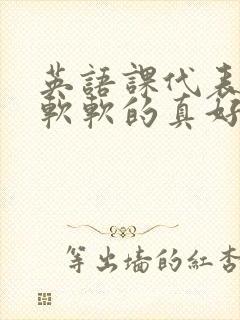 英語課代表
軟軟的真好
等出墻的紅杏